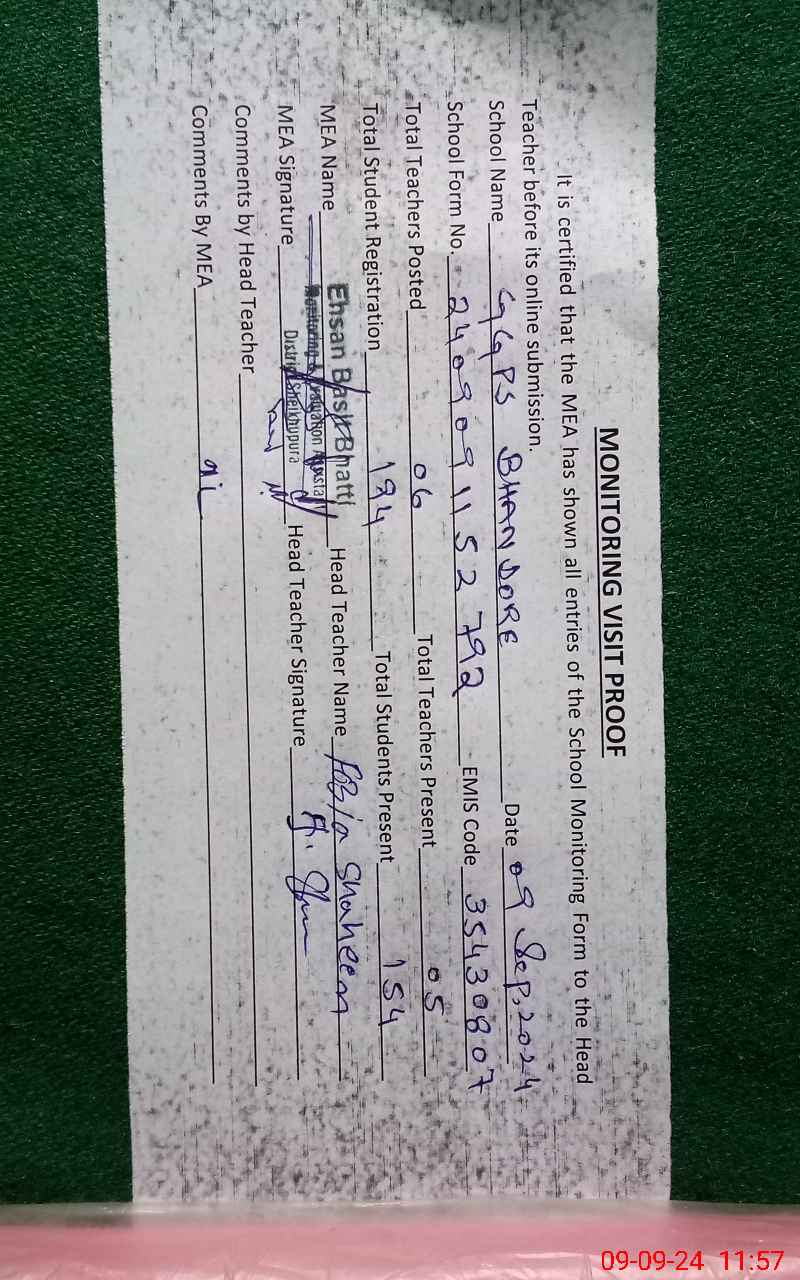 MONITORING VISIT PROOF
It is certified that the MEA has shown all entries of the School Monitoring Form to the Head
Teacher before its online submission.
School Name GGPS BHANDORE Date 09 Sep, 2024
School Form No. 2409091152792 EMIS Code 35430807
Total Teachers Posted 06 Total Teachers Present 05
Total Student Registration 194 Total Students Present 154
MEA Name Ehsan Bhatti Head Teacher Name Shaheen
Monitoring & Evaluation
District Sheikhupura
MEA Signature Head Teacher Signature
Comments by Head Teacher
Comments By MEA
09-09-24 11:57